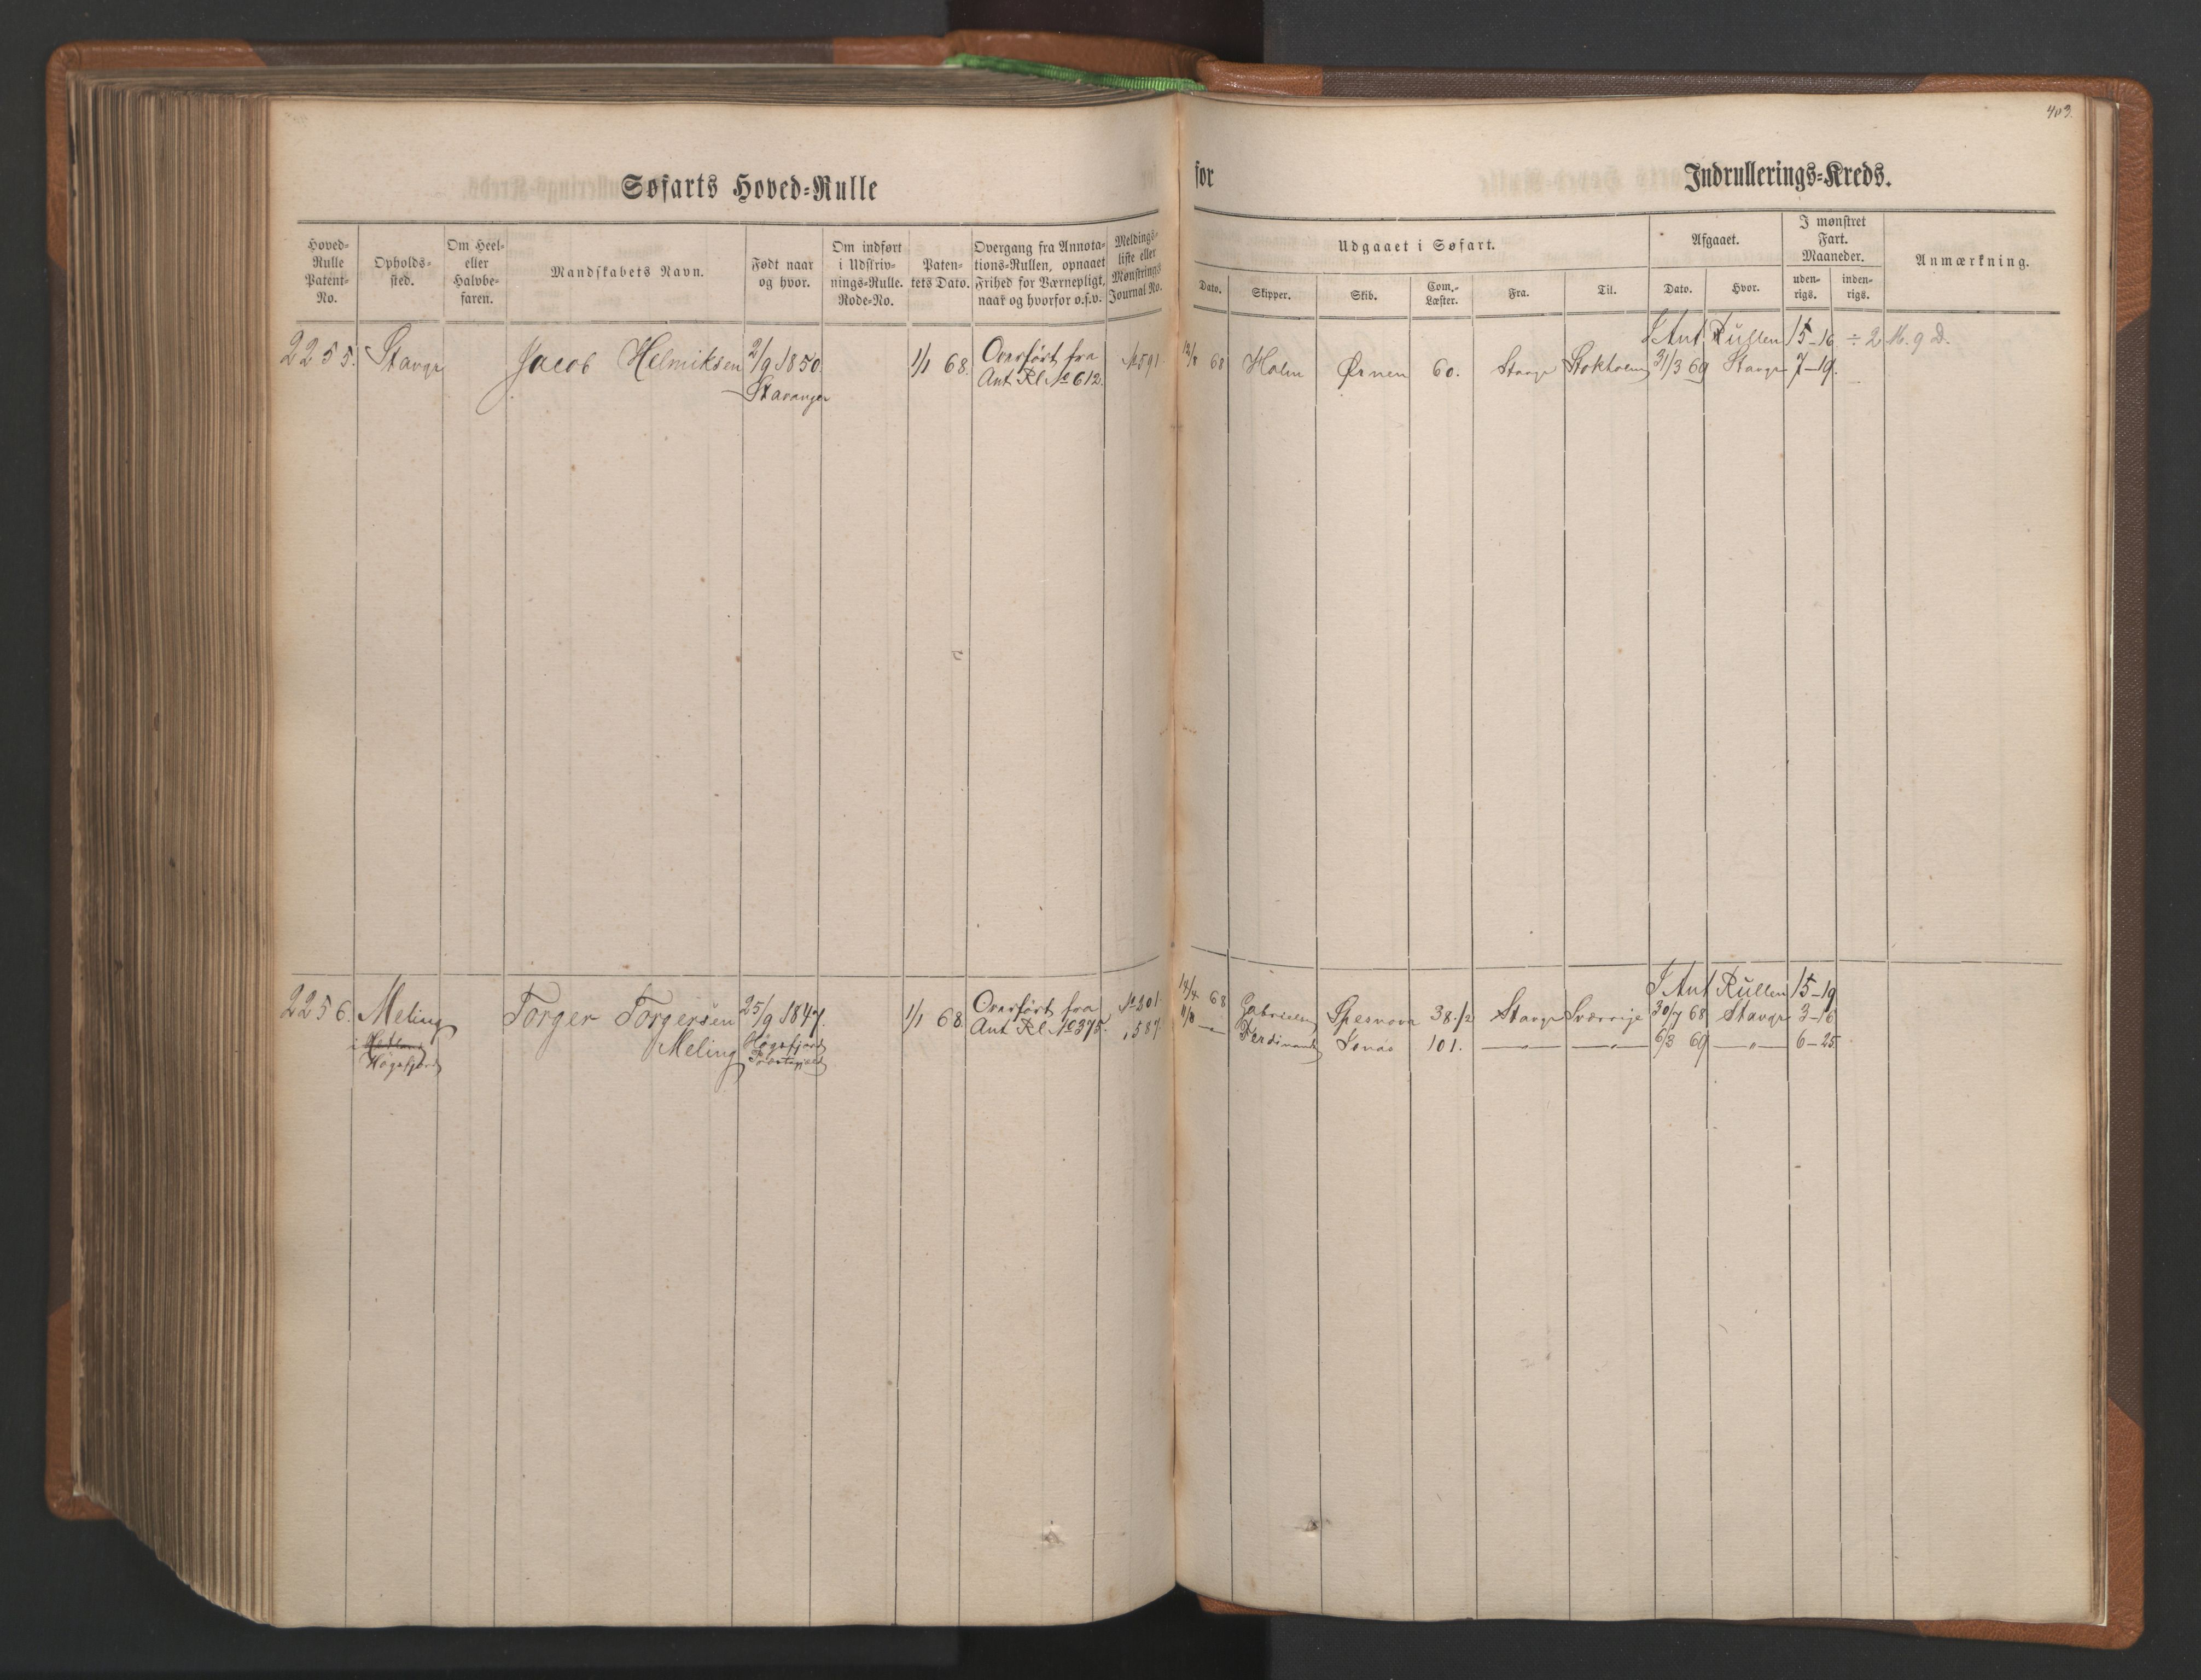 403.
Søfarts Hoved=Rulle
for Indrullerings=Kreds.
Hoved=Rulle Patent=No.
Opholds=sted.
Om Heel= eller Halvbe=faren.
Mandskabets Navn.
Født naar og hvor.
Om indført i Udskriv=nings=Rulle. Rode=No.
Paten=tets Dato.
Overgang fra Annota=tions=Rullen, opnaaet Frihed for Værnepligt, naar og hvorfor o.s.v.
Meldings=liste eller Mønstrings Journal No.
Udgaaet i Søfart.
Dato.
Skipper.
Skib.
Com.=Læster.
Fra.
Til.
Afgaaet.
Dato.
Hvor.
I mønstret Fart. Maaneder.
uden=rigs.
inden=rigs.
Anmærkning.
I Ant Rullen 15–16 ÷ 2 M. 9 D.
2255. Stavgr Jacob Helmiksen 2/9 1850. Overført fra
1/1 68. Ant Rl No 612. No 591. 12/8 68 Holm Ørnen 60. Stavgr Stokholm 31/3 69 Stavgr 7–19.
Stavanger
I Ant Rullen 15–19
2256. Meling Torger Torgersen 25/9 1847. 1/1 68. Overført fra No 201. 14/4 68 Gabrielsen Spesnova 38.1/2 Stavgr Sverrige 30/7 68 Stavgr 3–16
i Høgsfjord Meling Høgsfjord Præstegjeld Ant Rl No 375. " 587. 11/8 –"– Ferdinands Jonas 101. –"– –"– 6/3 69 –"– 6–25.